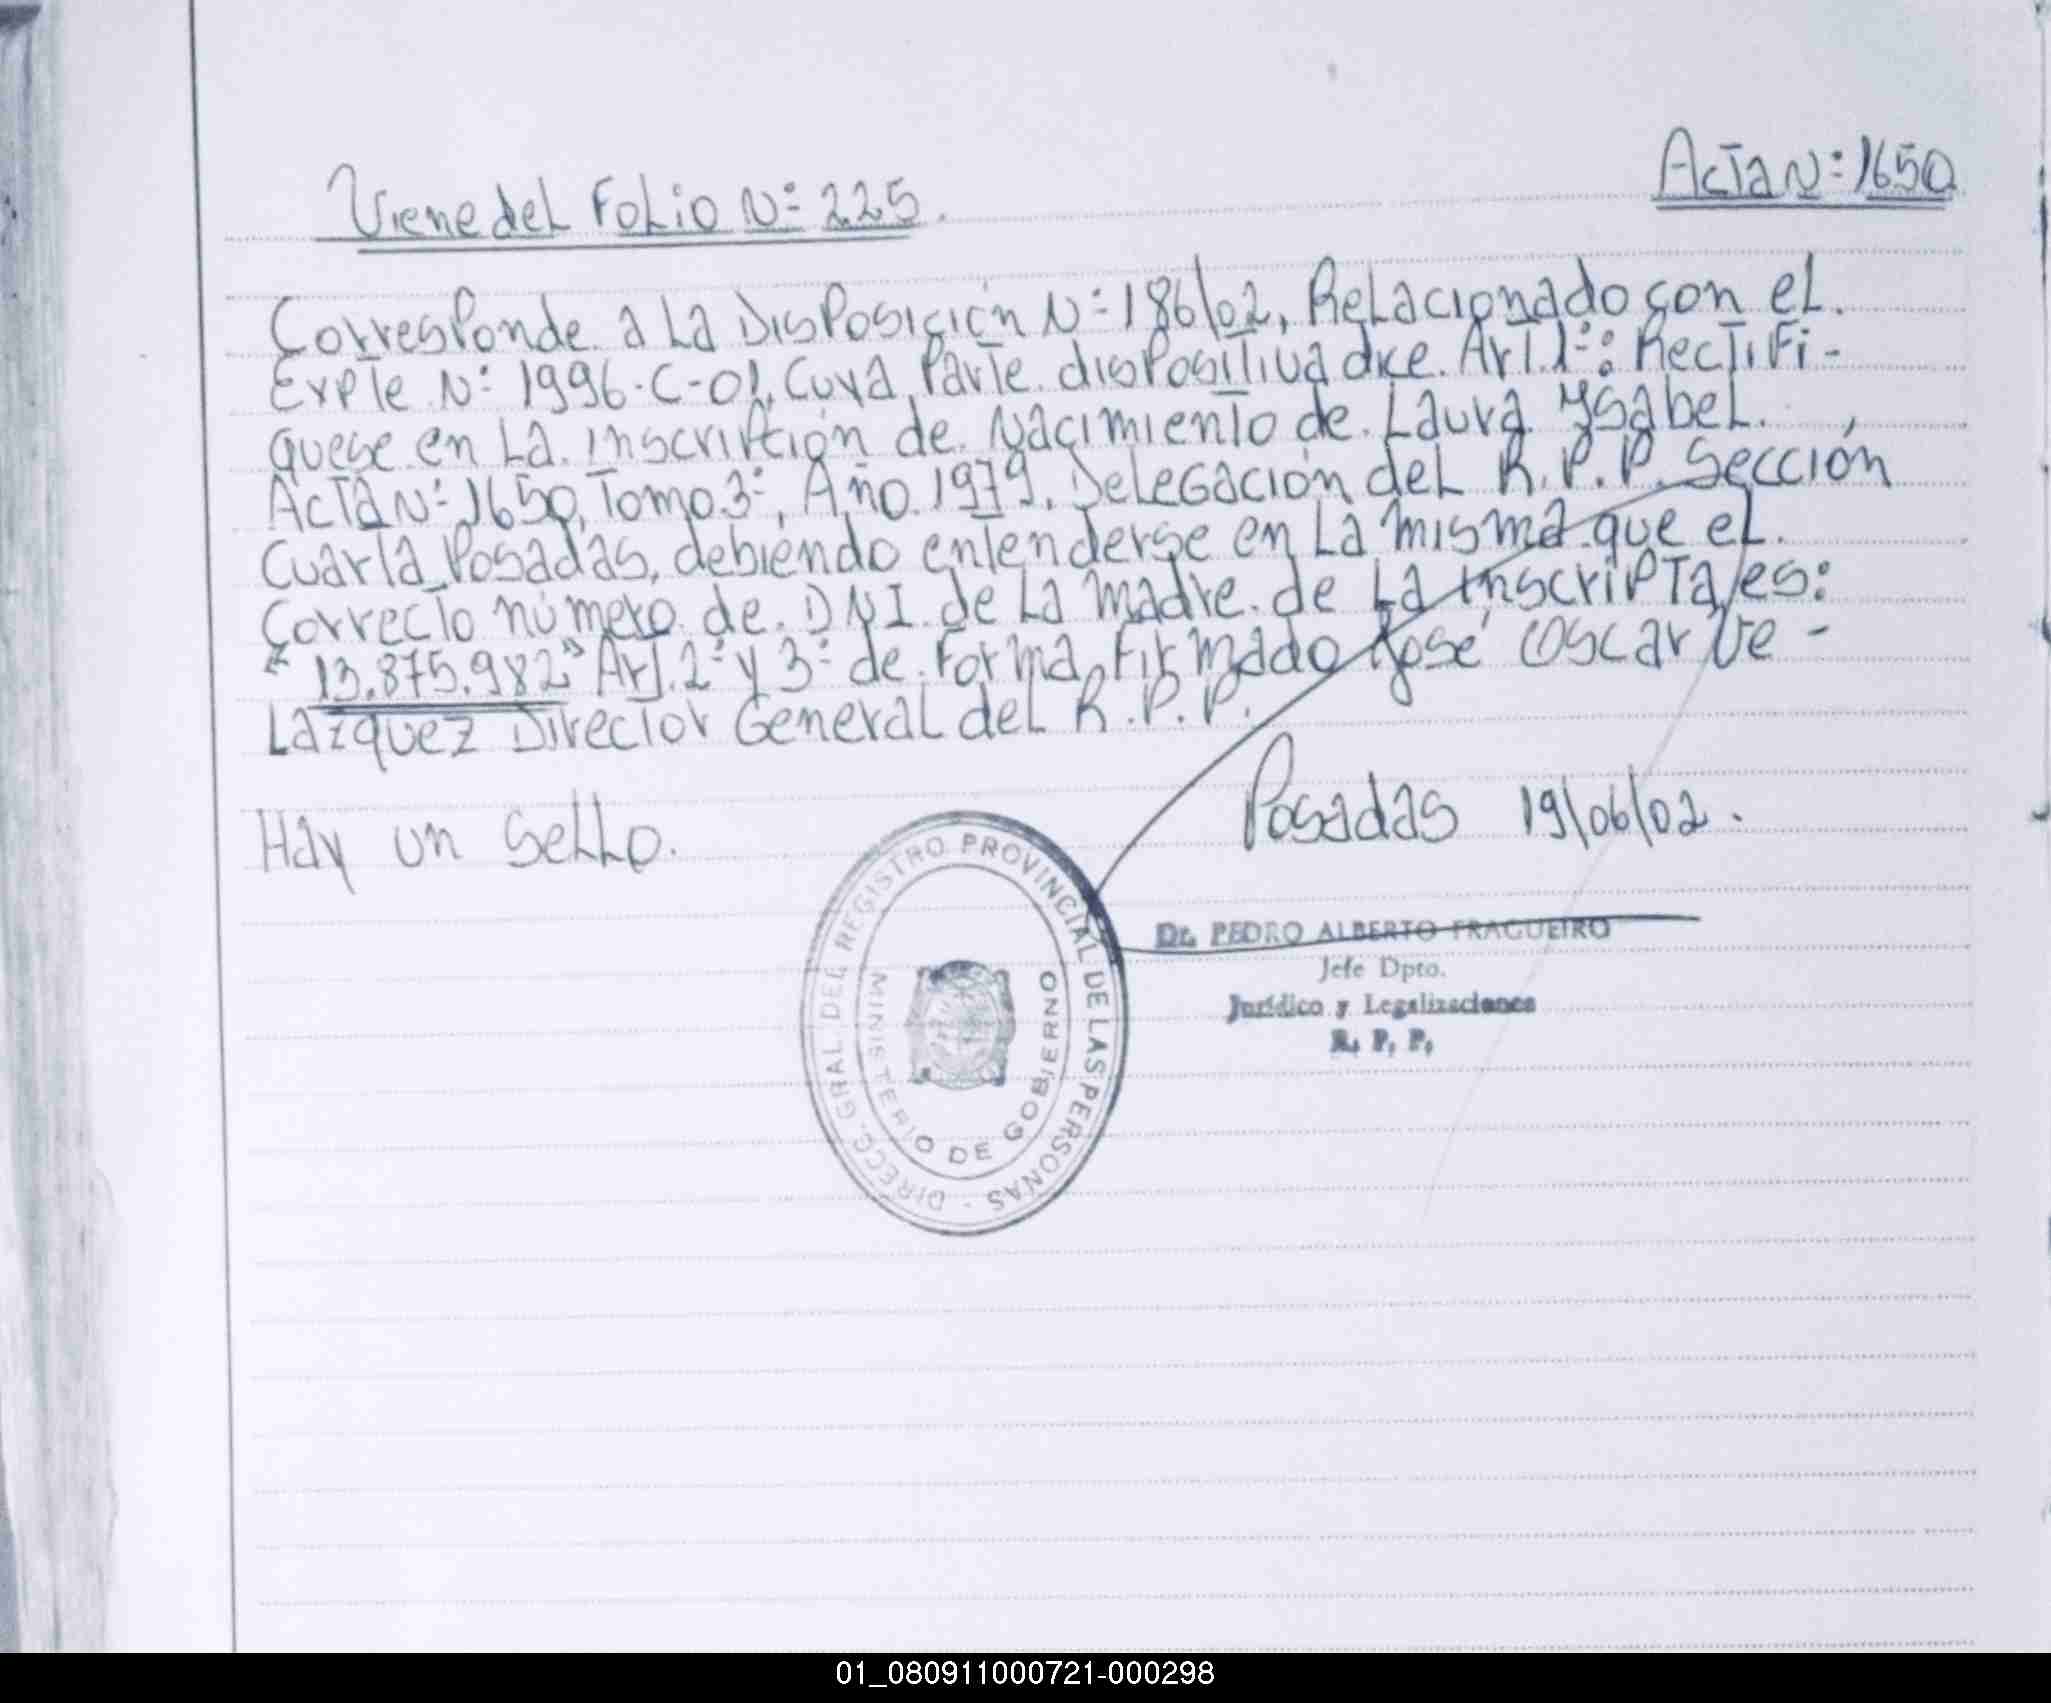 Viene del Folio Nº 225.
Acta Nº 1650
Corresponde a la Disposición Nº 186/02, Relacionado con el
Expte Nº 1996-C-01, Cuya Parte dispositiva dice. Art. 1º: Rectifi-
quese en la inscripción de Nacimiento de Laura Ysabel.
Acta Nº 1650, Tomo 3º, Año 1979, Delegación del R.P.P. Sección
Cuarta Posadas, debiendo entenderse en la misma que el
Correcto número de DNI de la madre de la inscripta es:
"13.875.982" Art. 2º y 3º de Forma, Firmado José Oscar Ve-
lazquez Director General del R.P.P.
Hay un sello.
Posadas 19/06/02.
DIRECC. GRAL. DEL REGISTRO PROVINCIAL DE LAS PERSONAS -
MINISTERIO DE GOBIERNO
Dr. PEDRO ALBERTO FRAGUEIRO
Jefe Dpto.
Jurídico y Legalizaciones
R. P. P.
01_080911000721-000298